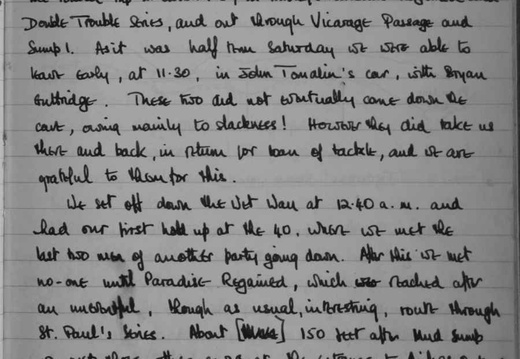 Double Trouble Series, and out through Vicarage Passage and
Sump 1. As it was half term Saturday we were able to
leave early, at 11.30, in John Tomalin's car, with Bryan
Guttridge. These two did not eventually come down the
cave, owing mainly to slackness! However they did take us
there and back, in return for loan of tackle, and we are
grateful to them for this.
We set off down the Wet Way at 12.40 a.m. and
had our first hold up at the 40, where we met the
last two men of another party going down. After this we met
no-one until Paradise Regained, which was reached after
an uneventful, though as usual, interesting, route through
St. Paul's Series. About 150 feet after Mud Sump